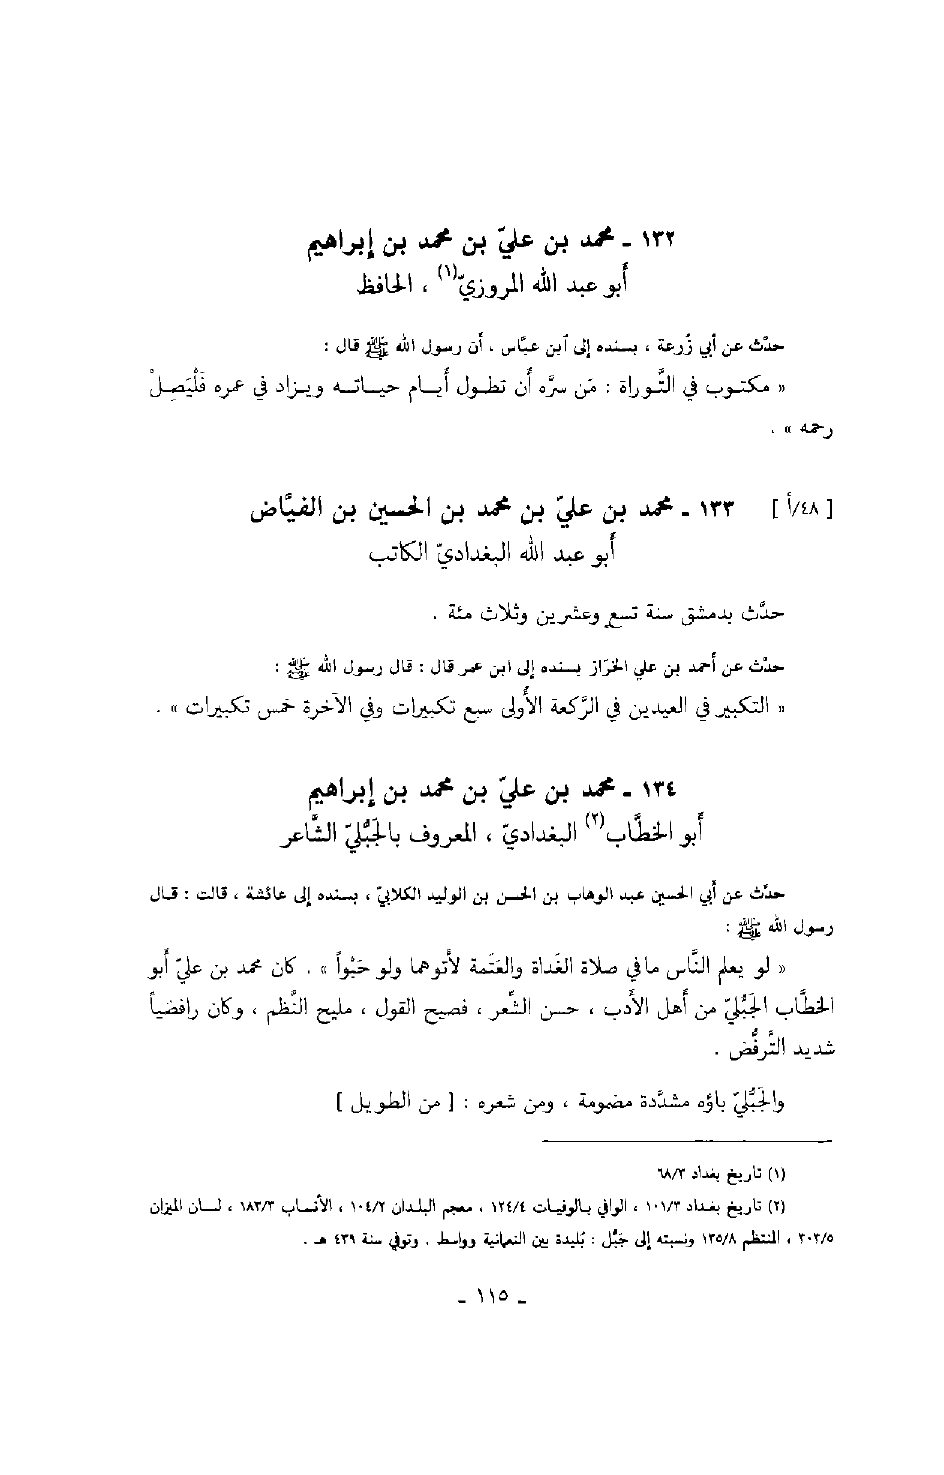 ١٣٢ ـ محمد بن عليّ بن محمد بن إبراهيم
أبو عبد الله المروزيّ(١) ، الحافظ
حدّث عن أبي زُرعة ، بسنده إلى آبن عبّاس ، أن رسول الله ﷺ قال :
« مكتوب في التَّوراة : مَن سرَّه أن تطول أيام حياته ويزاد في عمره فَلْيَصِلْ
رحمه » .
[ ٤٨/أ ] ١٣٣ ـ محمد بن عليّ بن محمد بن الحسين بن الفيَّاض
أبو عبد الله البغداديّ الكاتب
حدَّث بدمشق سنة تسع وعشرين وثلاث مئة .
حدّث عن أحمد بن علي الخرّاز بسنده إلى ابن عمر قال : قال رسول الله ﷺ :
« التكبير في العيدين في الرَّكعة الأُولى سبع تكبيرات وفي الآخرة خمس تكبيرات » .
١٣٤ ـ محمد بن عليّ بن محمد بن إبراهيم
أبو الخطَّاب(٢) البغداديّ ، المعروف بالجَبُّليّ الشَّاعر
حدّث عن أبي الحسين عبد الوهاب بن الحسن بن الوليد الكلابيّ ، بسنده إلى عائشة ، قالت : قال
رسول الله ﷺ :
« لو يعلم النَّاس ما في صلاة الغَداة والعَتَمة لأَتوهما ولو حَبْواً » . كان محمد بن عليّ أبو
الخطَّاب الجَبُّليّ من أهل الأدب ، حسن الشِّعر ، فصيح القول ، مليح النَّظم ، وكان رافضياً
شديد التَّرفُّض .
والجَبُّليّ باؤه مشدَّدة مضمومة ، ومن شعره : [ من الطويل ]
(١) تاريخ بغداد ٦٨/٣
(٢) تاريخ بغداد ١٠١/٣ ، الوافي بالوفيات ١٢٤/٤ ، معجم البلدان ١٠٤/٢ ، الأنساب ١٨٣/٣ ، لسان الميزان
٣٠٣/٥ ، المنتظم ١٣٥/٨ ونسبته إلى جَبُّل : بُليدة بين النعمانية وواسط . وتوفي سنة ٤٣٩ هـ .
ـ ١١٥ ـ